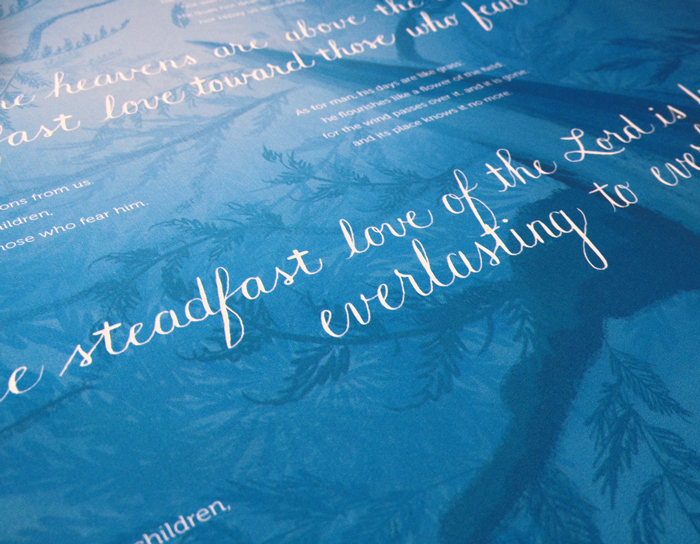 he heavens are above the
fast love toward those who fear
As for man, his days are like grass;
he flourishes like a flower of the field;
for the wind passes over it, and it is gone,
and its place knows it no more.
ons from us.
ildren,
hose who fear him.
e steadfast love of the Lord is
everlasting to ever
children,